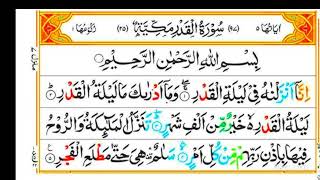 اٰيَاتُهَا ٥ (٩٧) سُوْرَةُ الْقَدْرِ مَكِّيَّةٌ (٢٥) رُكُوْعُهَا ١
بِسْمِ اللّٰهِ الرَّحْمٰنِ الرَّحِيْمِ
اِنَّاۤ اَنْزَلْنٰهُ فِيْ لَيْلَةِ الْقَدْرِ ۝١ وَمَاۤ اَدْرٰىكَ مَا لَيْلَةُ الْقَدْرِ ۝٢
لَيْلَةُ الْقَدْرِ ۙ خَيْرٌ مِّنْ اَلْفِ شَهْرٍ ۝٣ تَنَزَّلُ الْمَلٰٓئِكَةُ وَالرُّوْحُ
فِيْهَا بِاِذْنِ رَبِّهِمْ ۚ مِّنْ كُلِّ اَمْرٍ ۝٤ سَلٰمٌ ۛ هِيَ حَتّٰى مَطْلَعِ الْفَجْرِ ۝٥